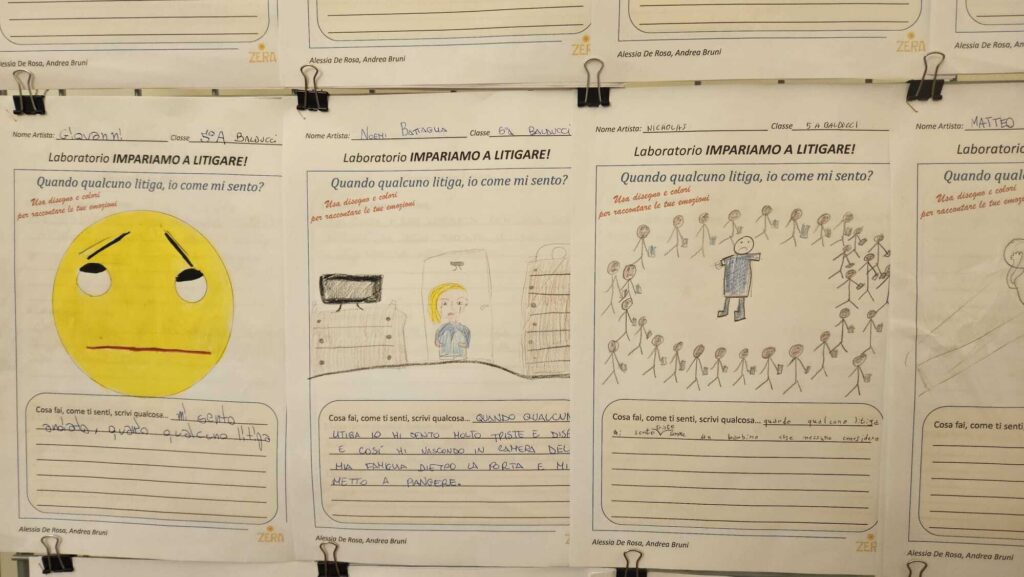 Alessia De Rosa, Andrea Bruni
ZERA
Alessia De Rosa, Andrea Bruni
ZE
Alessia De Rosa, Andrea Bruni
ZERA
Alessia De Rosa, An
Nome Artista: Giovanni Classe 5°A BALDUCCI
Laboratorio IMPARIAMO A LITIGARE!
Quando qualcuno litiga, io come mi sento?
Usa disegno e colori
per raccontare le tue emozioni
Cosa fai, come ti senti, scrivi qualcosa... mi sento
quando qualcuno litiga
Alessia De Rosa, Andrea Bruni
ZERA
Nome Artista: NOEMI BATTAGLIA Classe 5A BALDUCCI
Laboratorio IMPARIAMO A LITIGARE!
Quando qualcuno litiga, io come mi sento?
Usa disegno e colori
per raccontare le tue emozioni
Cosa fai, come ti senti, scrivi qualcosa... QUANDO QUALCUN
LITIGA IO MI SENTO MOLTO TRISTE E DISE
E COSÍ MI NASCONDO IN CAMERA DEL
MIA FAMIGLIA DIETRO LA PORTA E MI
METTO A PIANGERE.
Alessia De Rosa, Andrea Bruni
ZE
Nome Artista: NICHOLAS Classe 5 A BALDUCCI
Laboratorio IMPARIAMO A LITIGARE!
Quando qualcuno litiga, io come mi sento?
Usa disegno e colori
per raccontare le tue emozioni
Cosa fai, come ti senti, scrivi qualcosa... quando qualcuno litiga
mi sento triste come un bambino che nessuno considera
Alessia De Rosa, Andrea Bruni
ZE
Nome Artista: MATTEO
Laboratorio
Quando qualcu
Usa disegno e colori
per raccontare le tue emozioni
Cosa fai, come ti sen
Alessia De Rosa, Andrea Bruni